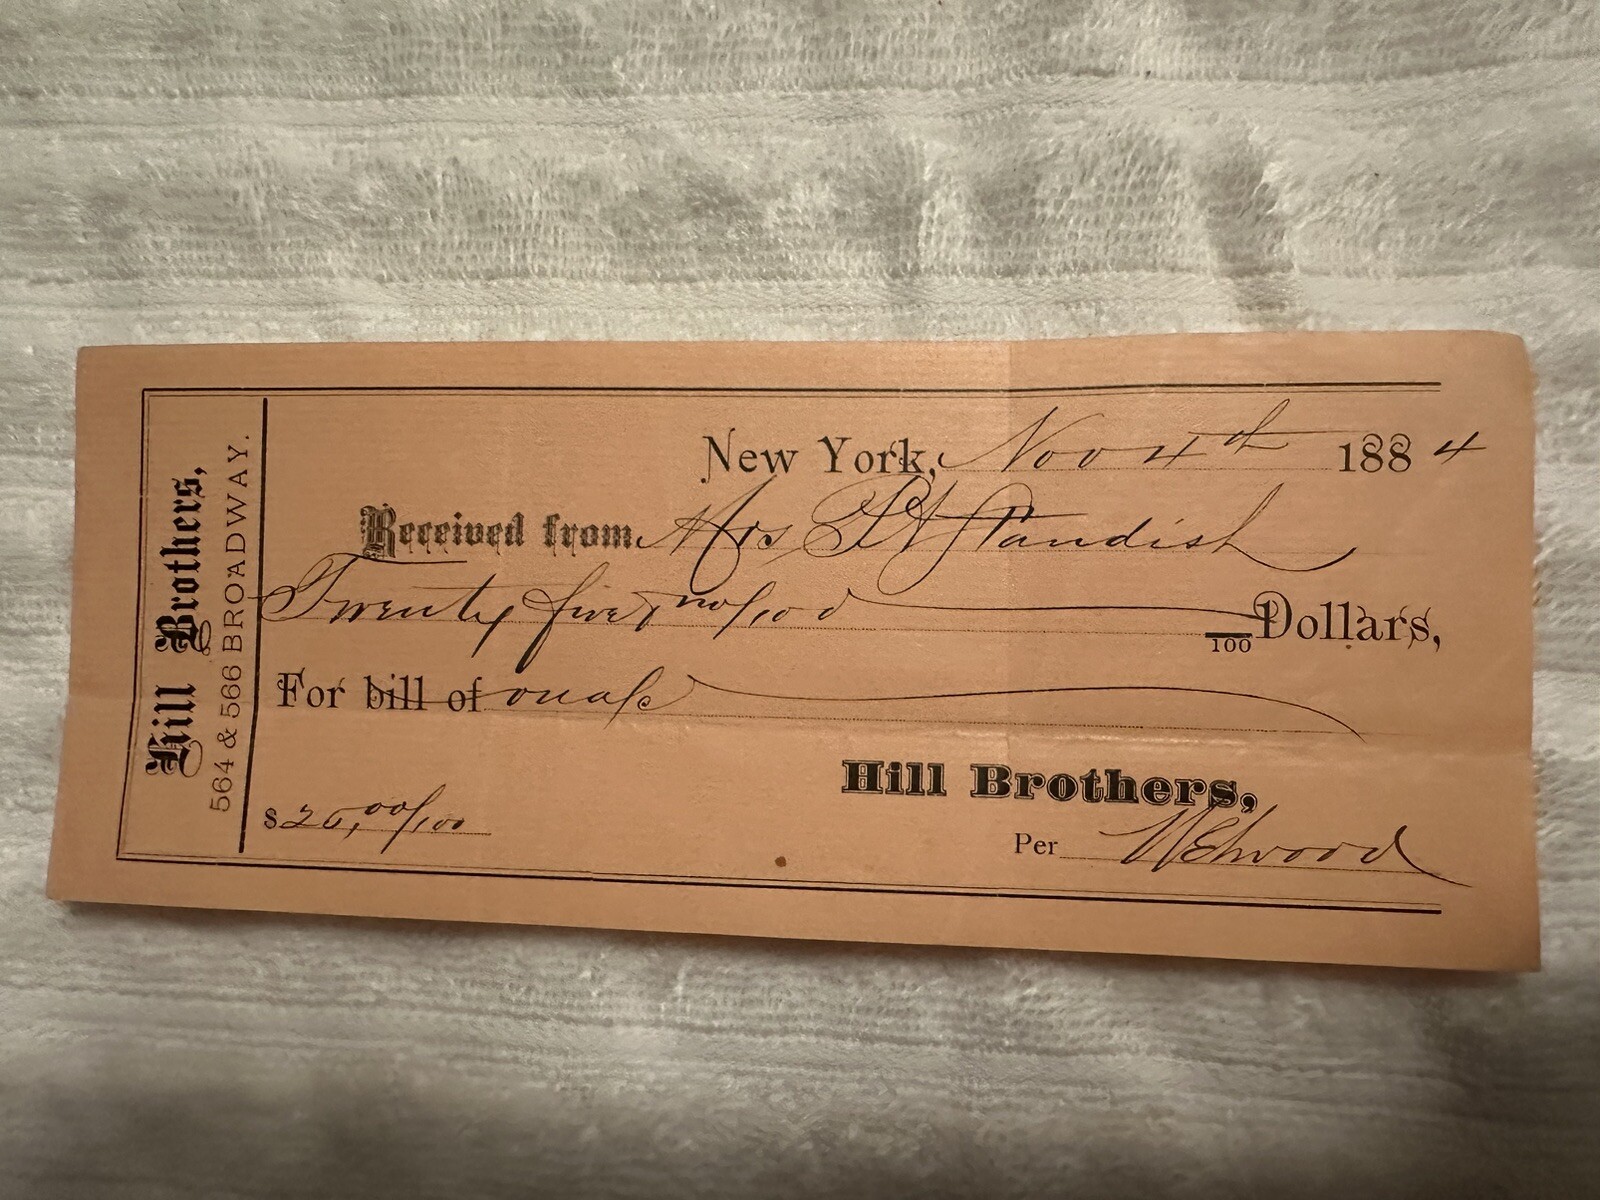 Hill Brothers,
564 & 566 BROADWAY.
New York, Nov 4th 1884
Received from Mrs Standish
Twenty five & no/100 /100 Dollars,
For bill of on a/c
$ 25,00/100
Hill Brothers,
Per